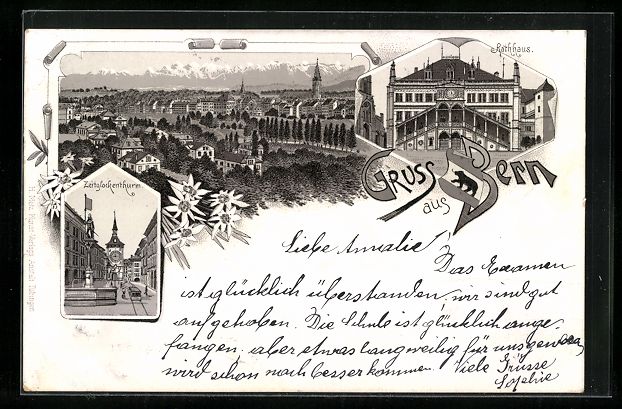 Rathhaus.
Gruss
aus
Bern
Zeitglockenthurm.
Liebe Amalie!
Das Examen
ist glücklich überstanden, wir sind gut
aufgehoben. Die Schule ist glücklich ange-
fangen, aber etwas langweilig für uns
wird schon noch besser kommen. Viele Grüsse
Sophie